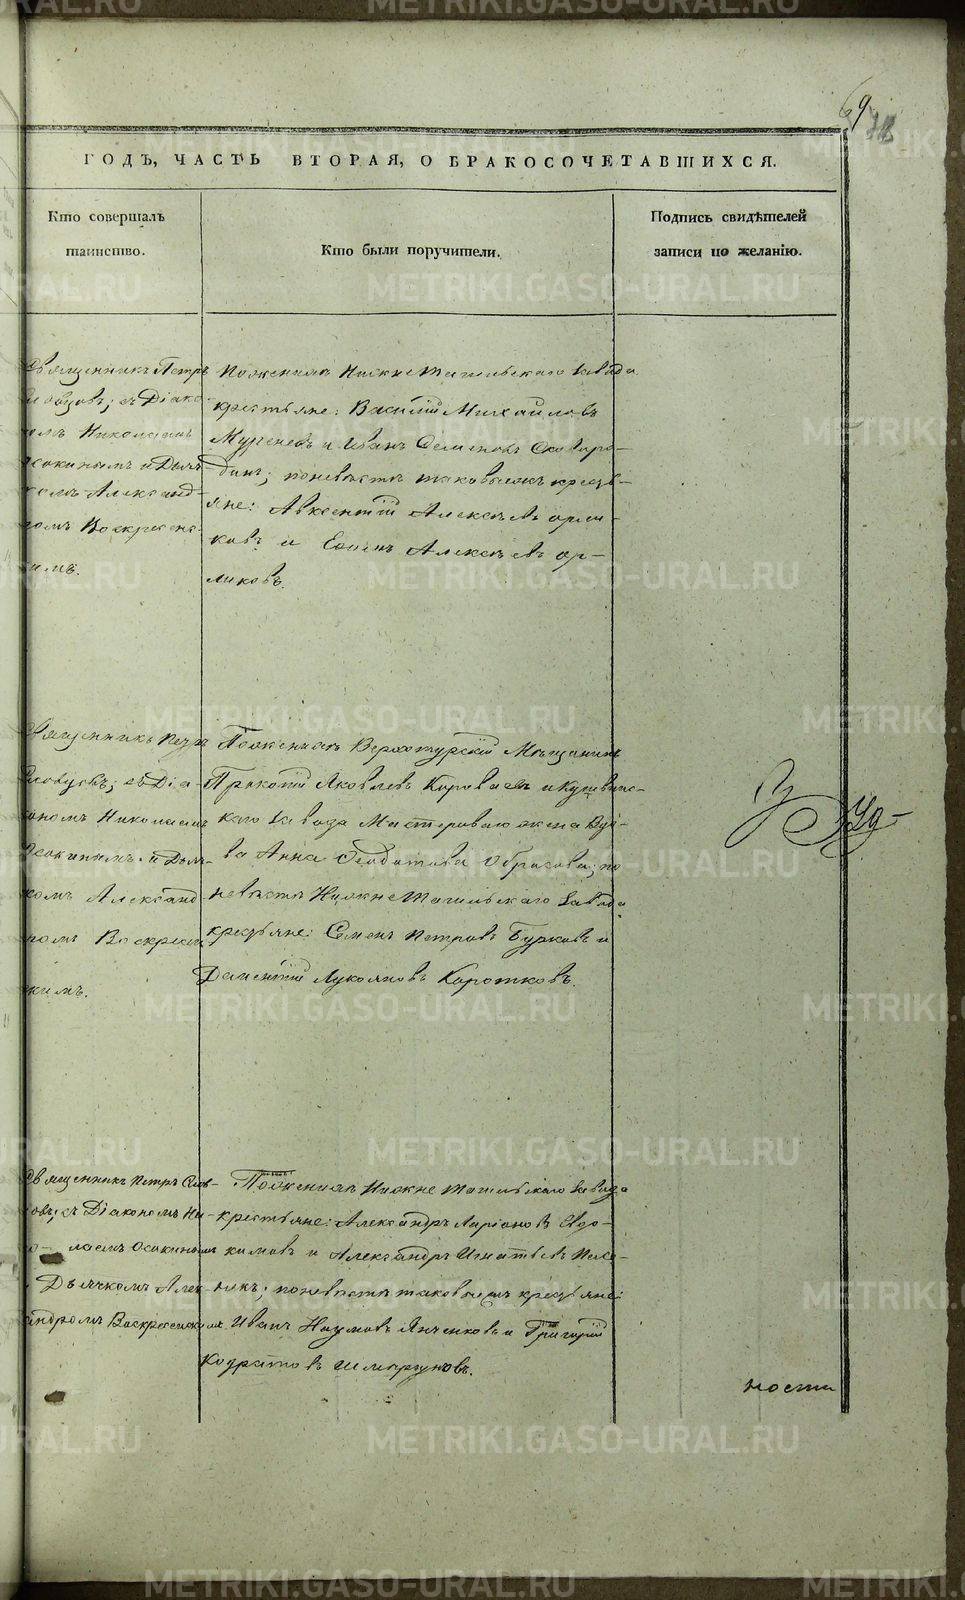 69
12
ГОДЪ, ЧАСТЬ ВТОРАЯ, О БРАКОСОЧЕТАВШИХСЯ.
Кто совершалъ
таинство.
Кто были поручители.
Подпись свидѣтелей
записи по желанію.
Священникъ Петръ
Словцовъ; съ Діако-
номъ Николаемъ
Осокинымъ и Дьяч-
комъ Александ-
ромъ Воскресенс-
кимъ.
Поженихѣ Нижнетагильскаго завода
крестьяне: Василій Михайловъ
и Иванъ Семеновъ Сковоро-
динъ; поневѣстѣ таковыежъ кресть-
яне: Авксентій Алексѣевъ Орли-
ковъ и Алексѣевъ Ор-
ликовъ.
Священникъ Петръ
Словцовъ; съ Діа-
кономъ Николаемъ
Осокинымъ и Дьяч-
комъ Александ-
ромъ Воскресенс-
кимъ.
Поженихѣ Верхотурскій Мѣщанинъ
Прокопій Яковлевъ Караваевъ и Кушвинс-
каго завода Мастероваго жена Вдо-
ва Анна Федотова; по
невѣстѣ Нижнетагильскаго завода
крестьяне: Семенъ Петровъ Бурковъ и
Дементій Лукояновъ Коротковъ.
Уд-
Священникъ Петръ Слов-
цовъ; съ Діакономъ Ни-
колаемъ Осокинымъ
и Дьячкомъ Алек-
сандромъ Воскресенскимъ.
Поженихѣ Нижнетагильскаго завода
крестьяне: Александръ Ларіоновъ Евдо-
кимовъ и Александръ Игнатьевъ
поневѣстѣ таковыежъ крестьяне:
Иванъ Наумовъ Янченковъ и Григорій
Кодратовъ Шмаргуновъ.
ности
METRIKI.GASO-URAL.RU